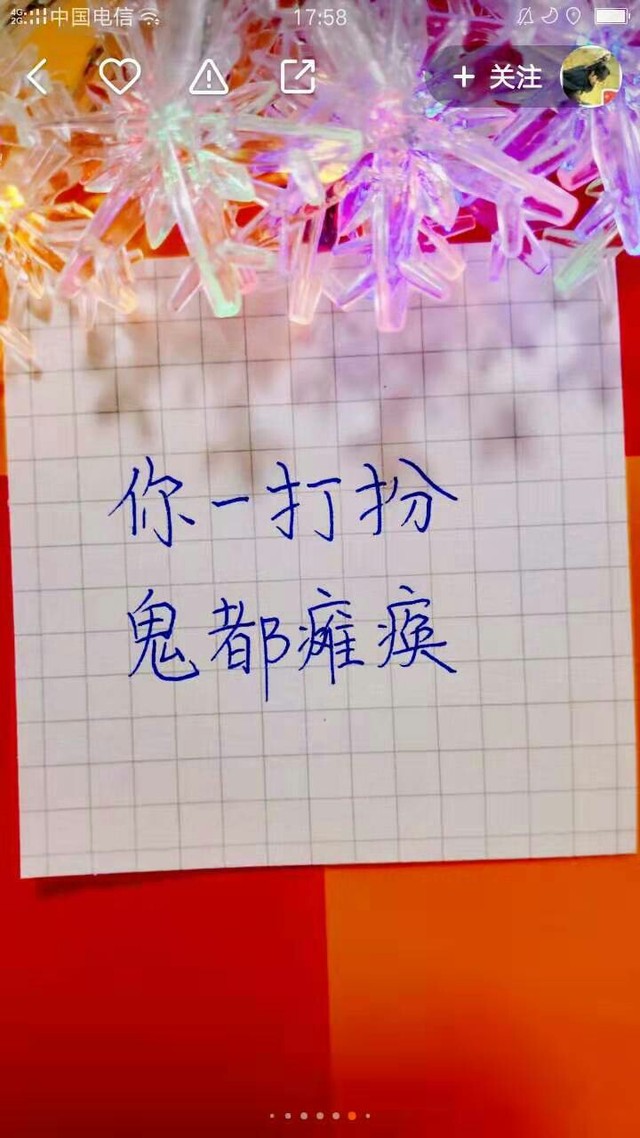 4G 2G 中国电信 17:58
+ 关注
你一打扮
鬼都瘫痪